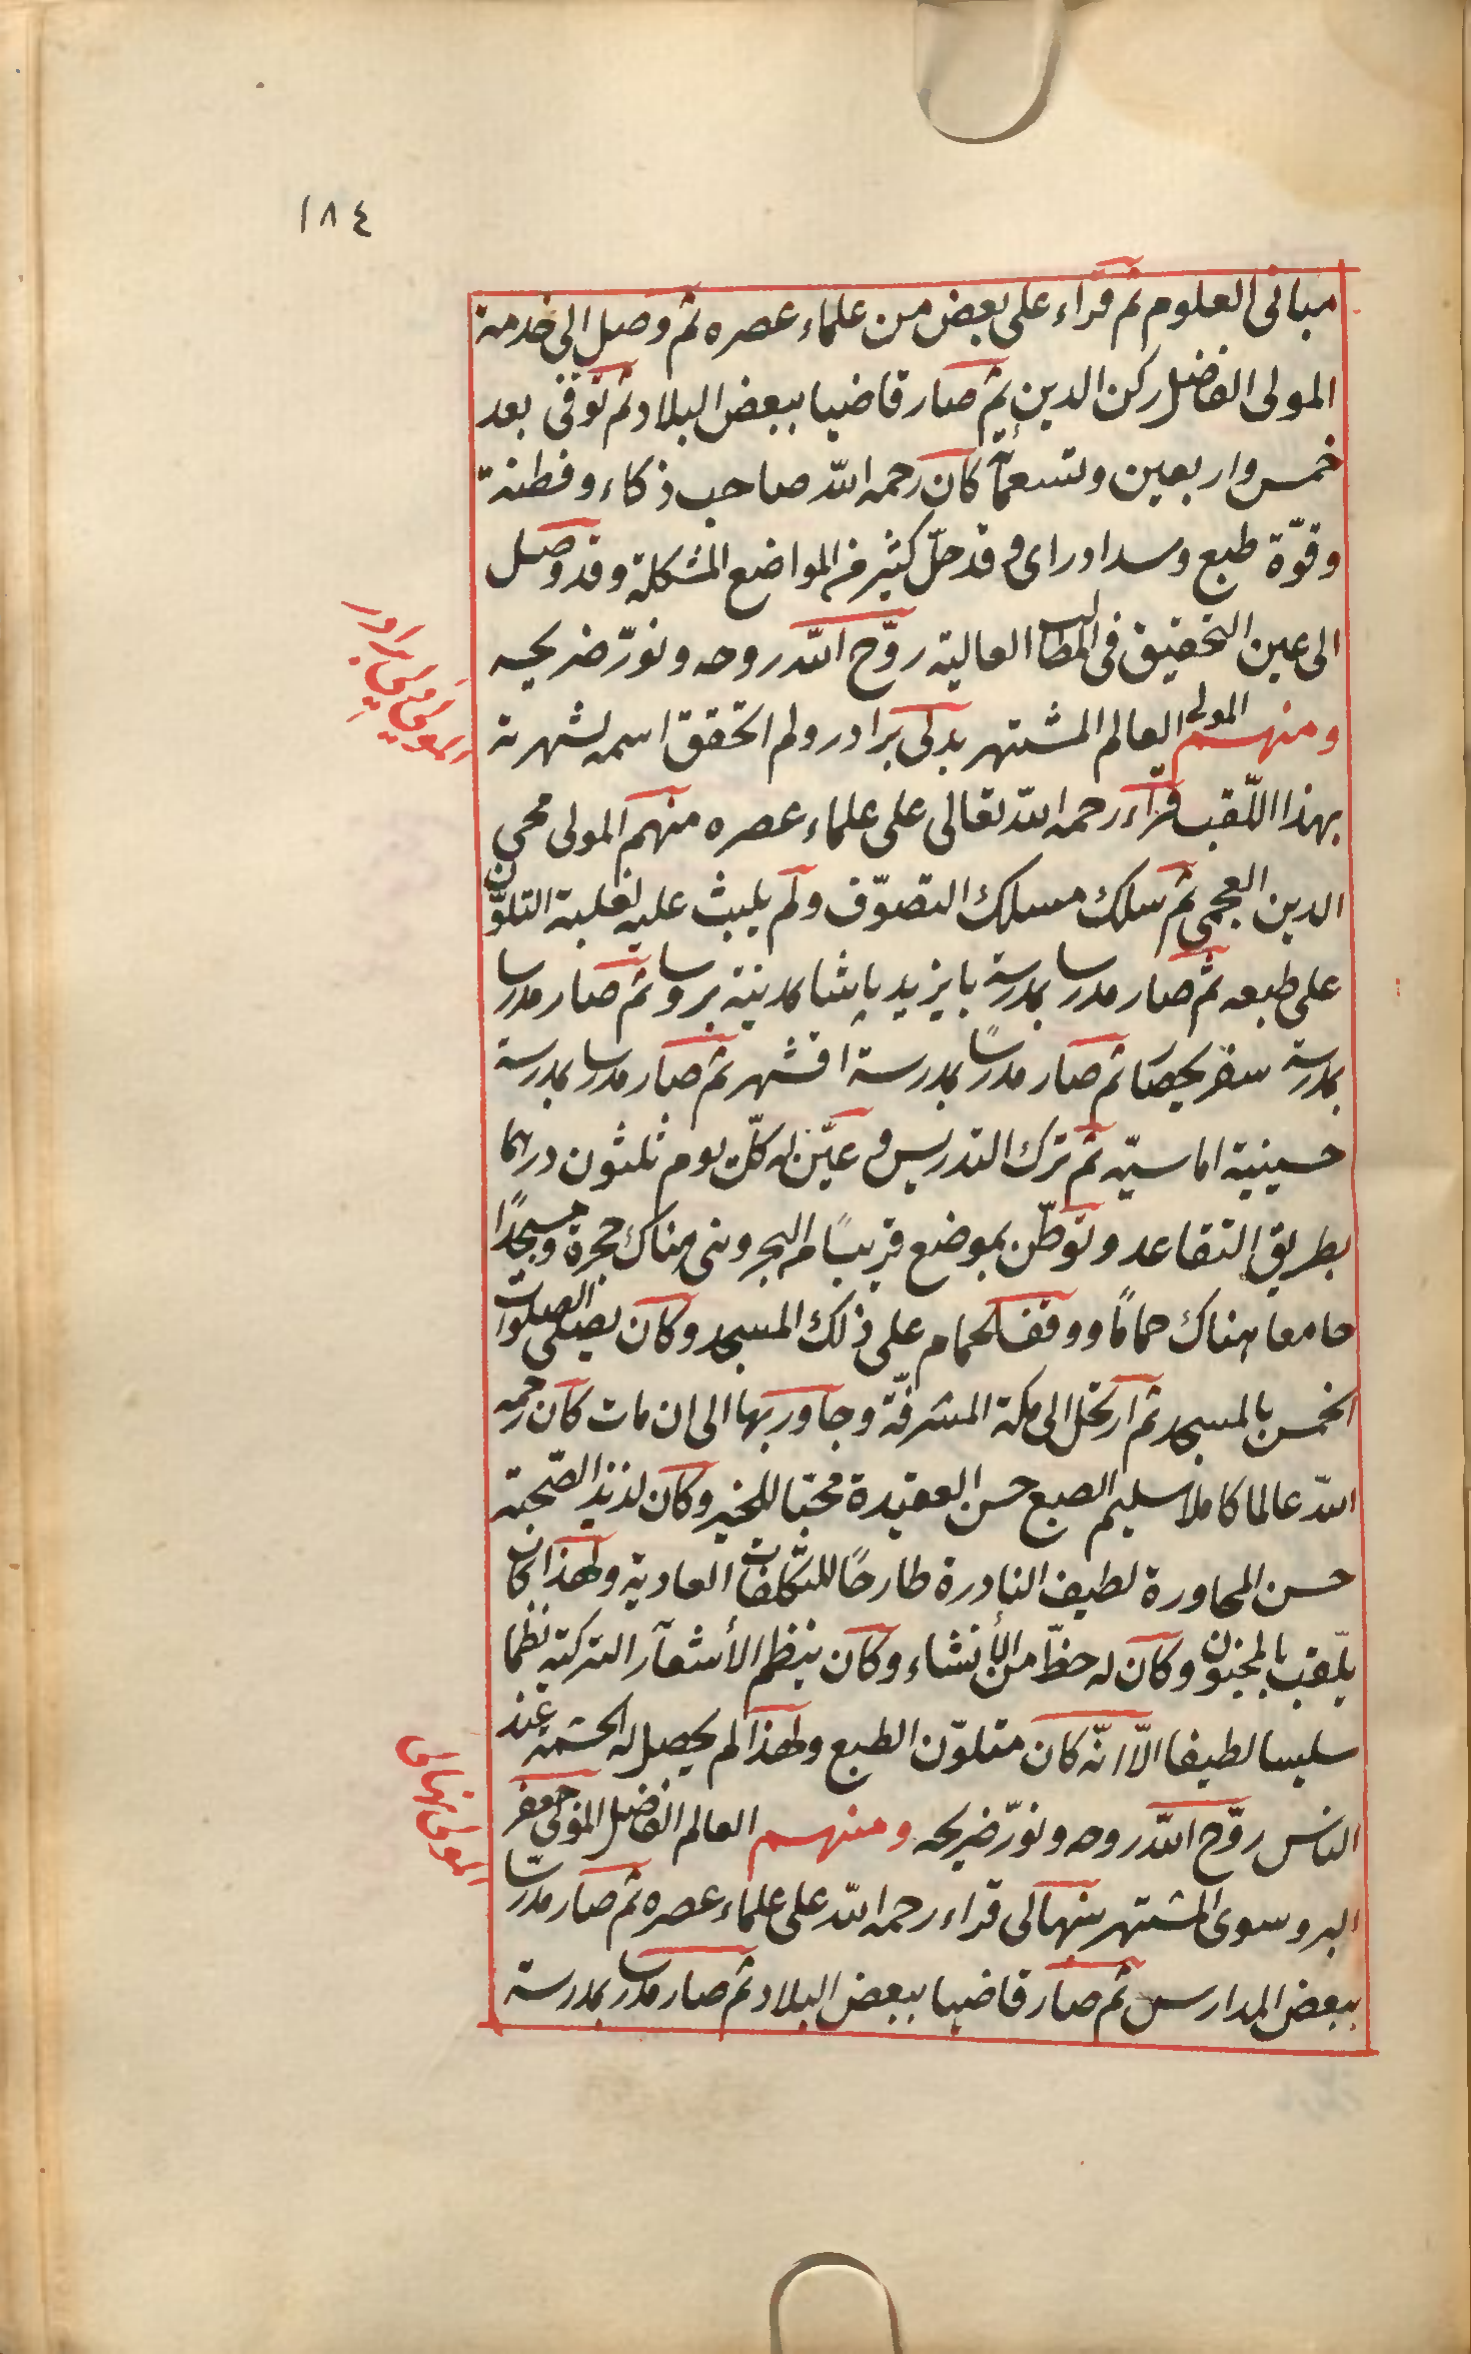 ١٨٤
مبانى العلوم ثم قراء على بعض من علماء عصره ثم وصل الى خدمة
المولى الفاضل ركن الدين ثم صار قاضيا ببعض البلاد ثم توفى بعد
خمس واربعين وتسعمائة كان رحمه الله صاحب ذكاء وفطنة
وقوّة طبع وسداد راى وقد حلّ كثير من المواضع المشكلة وقد وصل
الى عين التحقيق فى المطالب العالية روّح الله روحه ونوّر ضريحه
ومنهم المولى العالم المشتهر بدلى برادر ولم اتحقق اسمه لشهرته
المولى دلى برادر
بهذا اللّقب قراء رحمه الله تعالى على علماء عصره منهم المولى محيى
الدين العجمى ثم سلك مسلك التصوّف ولم يلبث عليه لغلبة التلوّن
على طبعه ثم صار مدرسا بمدرسة بايزيد پاشا بمدينة بروسا ثم صار مدرسا
بمدرسة سفريحصا ثم صار مدرسًا بمدرسة اقشهر ثم صار مدرسا بمدرسة
حسينية اماسيّه ثم ترك التدريس وعيّن له كلّ يوم ثلثون درهما
بطريق التقاعد وتوطّن بموضع قريبًا من البحر وبنى هناك حجرة ومسجدًا
جامعا هناك حمامًا ووقف الحمام على ذلك المسجد وكان يصلى الصلوات
الخمس بالمسجد ثم ارتحل الى مكة المشرفّة وجاور بها الى ان مات كان رحمه
الله عالما كاملا سليم الصبع حسن العقيدة محبّا للخير وكان لذيذ الصّحبة
حسن المحاورة لطيف النادرة طارحًا للتكلّفات العادية ولهذا كان
يلّقب بالمجنون وكان له حظّ من الأنشاء وكان ينظم الأشعار التركية نظما
سليسا لطيفا الّا انّه كان متلوّن الطبع ولهذا لم يحصل له الحشمة عند
الناس روّح الله روحه ونوّر ضريحه ومنهم العالم الفاضل المولى جعفر
المولى نهالى
البروسوى المشتهر بنهالى قراء رحمه الله على علماء عصره ثم صار مدرسّا
ببعض المدارس ثم صار قاضيا ببعض البلاد ثم صار مدرسا بمدرسة